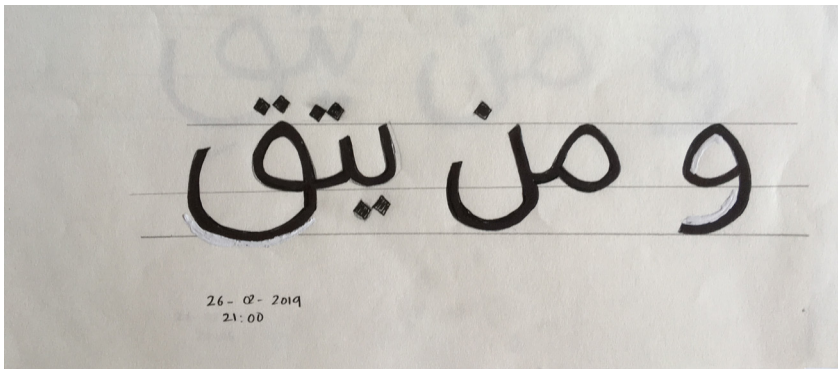 و من يتق
26-02-2019
21:00